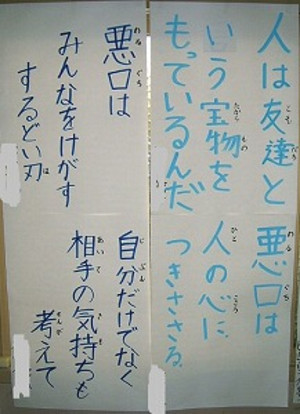 人は友達と
いう宝物を
もっているんだ
悪口は
人の心に
つきささる
悪口は
みんなをけがす
するどい刃
自分だけでなく
相手の気持ちも
考えて